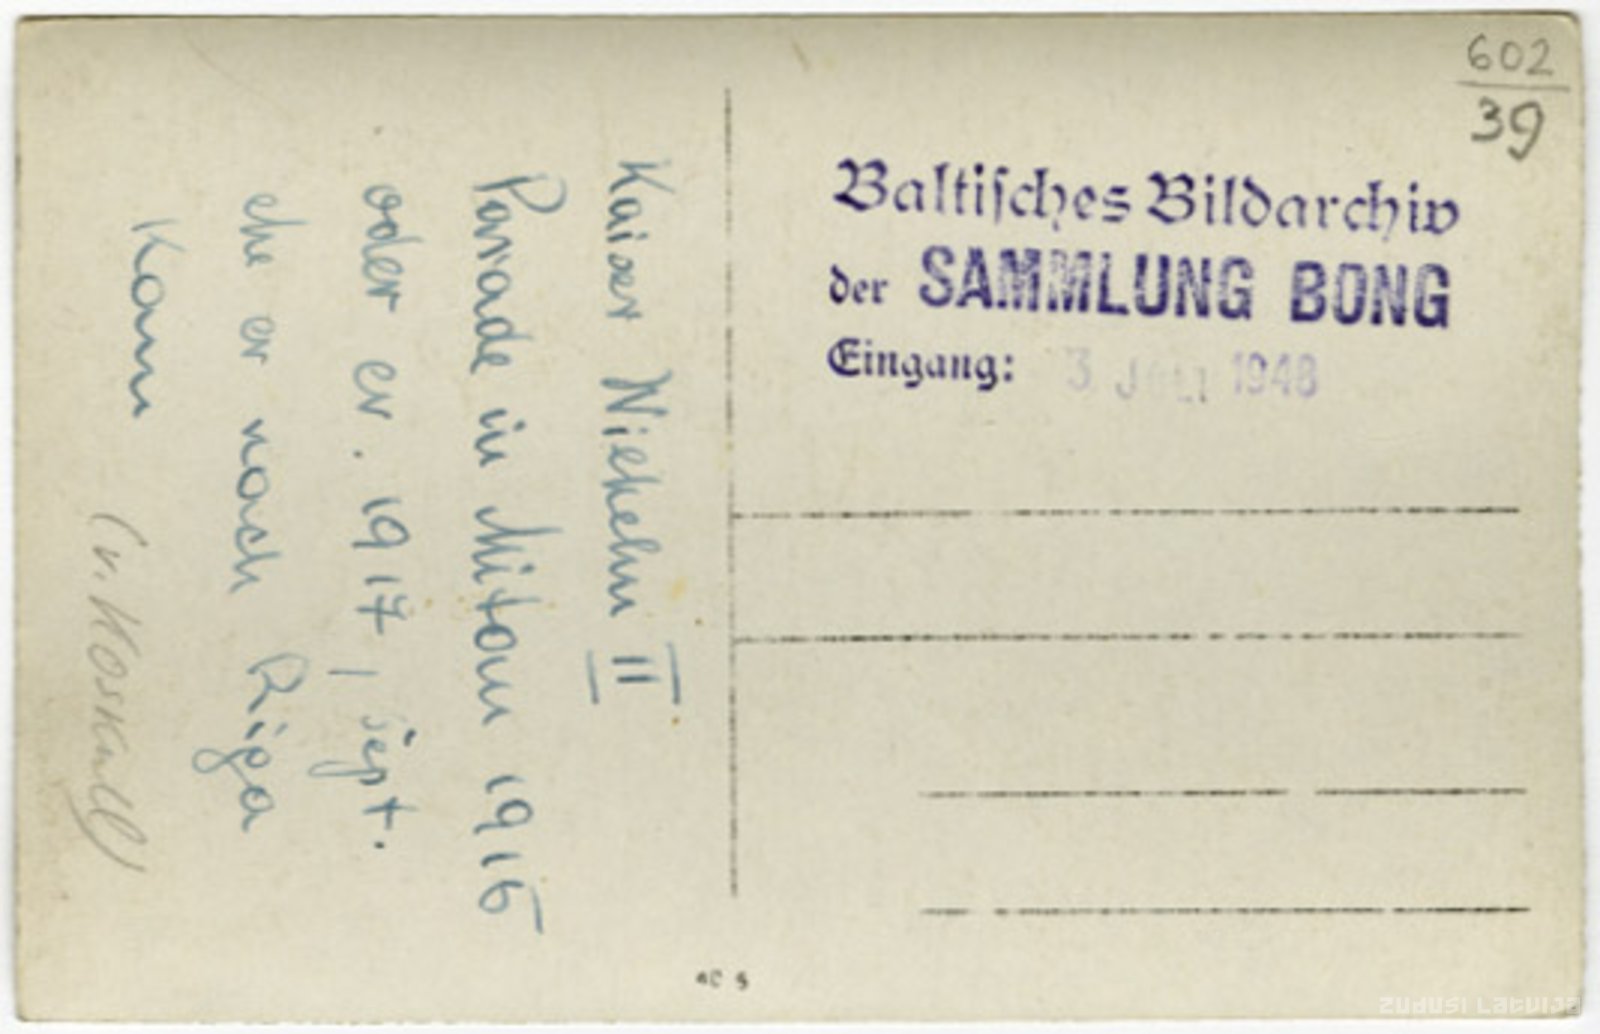 602
39
Baltisches Bildarchiv
der SAMMLUNG BONG
Eingang: 3. 1948
Kaiser Wilhelm II
Parade in Mitau 1915
oder ev. 1917, Sept.
ehe er nach Riga
kam
ZUDUSI LATVIJA